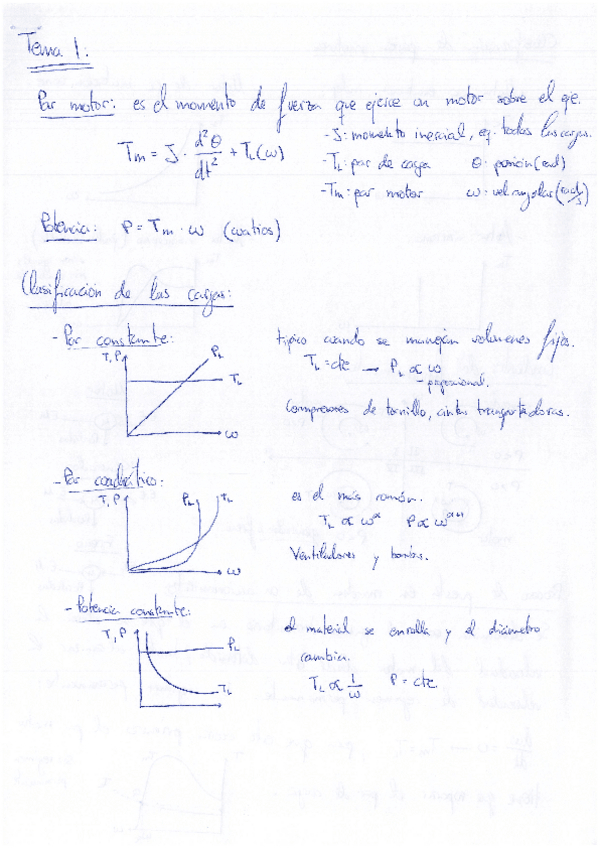 Tema 1:
Par motor: es el momento de fuerza que ejerce un motor sobre el eje.
Tm = J · d²θ/dt² + TL(ω)
- J: momento inercial, eq. todas las cargas.
- TL: par de carga θ: posición (rad)
- Tm: par motor ω: vel angular (rad/s)
Potencia: P = Tm · ω (watios)
Clasificación de las cargas:
- Par constante:
T, P
PL
TL
ω
típico cuando se manejan volúmenes fijos.
TL = cte → PL ∝ ω
→ proporcional.
Compresores de tornillo, cintas transportadoras.
- Par cuadrático:
T, P
PL
TL
ω
es el más común.
TL ∝ ω^α P ∝ ω^α+1
Ventiladores y bombas.
- Potencia constante:
T, P
PL
TL
el material se enrolla y el diámetro
cambia.
TL ∝ 1/ω P = cte